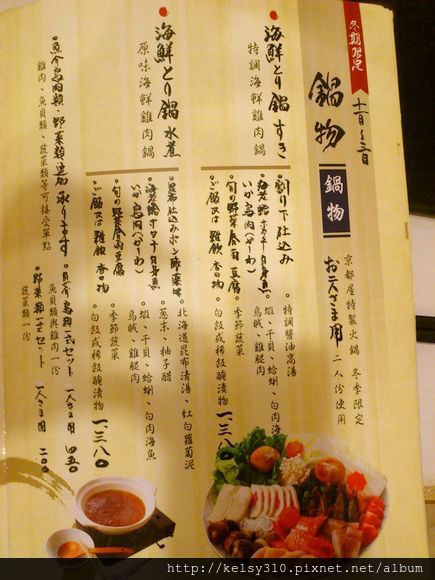 冬期限定
鍋物
十一月~三月
鍋物
京都屋特製火鍋 冬季限定
お二人さま用 二人份使用
海鮮とり鍋 すき
特調海鮮雞肉鍋
割り下仕込み
特調醬油高湯
蝦、干貝、蛤蜊、白肉海魚
烏賊、雞腿肉
旬の野菜 春雨 豆腐
季節蔬菜
ご飯又は雜飲 香の物
白飯或稀飯醃漬物
一、三八〇
海鮮とり鍋 水煮
原味海鮮雞肉鍋
昆布仕込み ポン酢
北海道昆布清湯、紅白蘿蔔泥
蔥末、柚子醋
蝦、干貝、蛤蜊、白肉海魚
烏賊、雞腿肉
旬の野菜 春雨 豆腐
季節蔬菜
ご飯又は雜飲 香の物
白飯或稀飯醃漬物
一、三八〇
魚介 鳥肉類・野菜類 追加 承ります
雞肉、魚貝類、蔬菜類等可接受單點
魚介 鳥類一式セット 一人さま用 四五〇
魚貝類與雞肉一份
野菜類一式セット 一人さま用 二〇〇
蔬菜類一份
http://kelsy310.pixnet.net/album